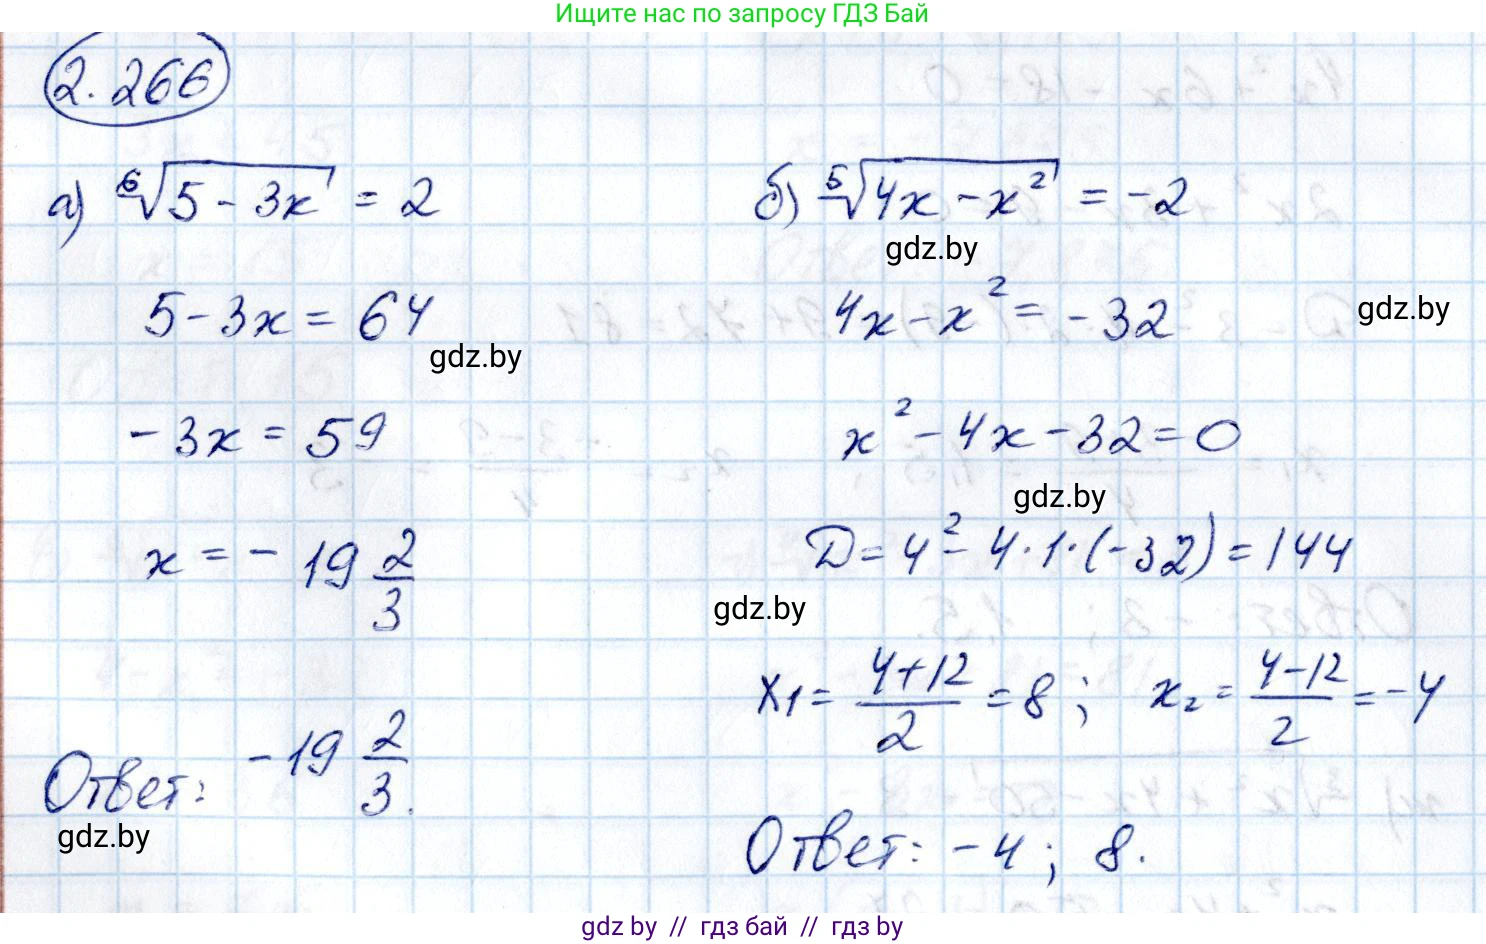 Ищите нас по запросу ГДЗ Бай
2.266
а) ⁶√(5 - 3x) = 2
5 - 3x = 64
gdz.by
- 3x = 59
x = - 19 2/3
Ответ: -19 2/3.
gdz.by
б) ⁵√(4x - x²) = -2
gdz.by
4x - x² = -32
gdz.by
x² - 4x - 32 = 0
gdz.by
D = 4² - 4·1·(-32) = 144
gdz.by
x₁ = (4+12)/2 = 8; x₂ = (4-12)/2 = -4
Ответ: -4; 8.
gdz by // гдз бай // гдз by